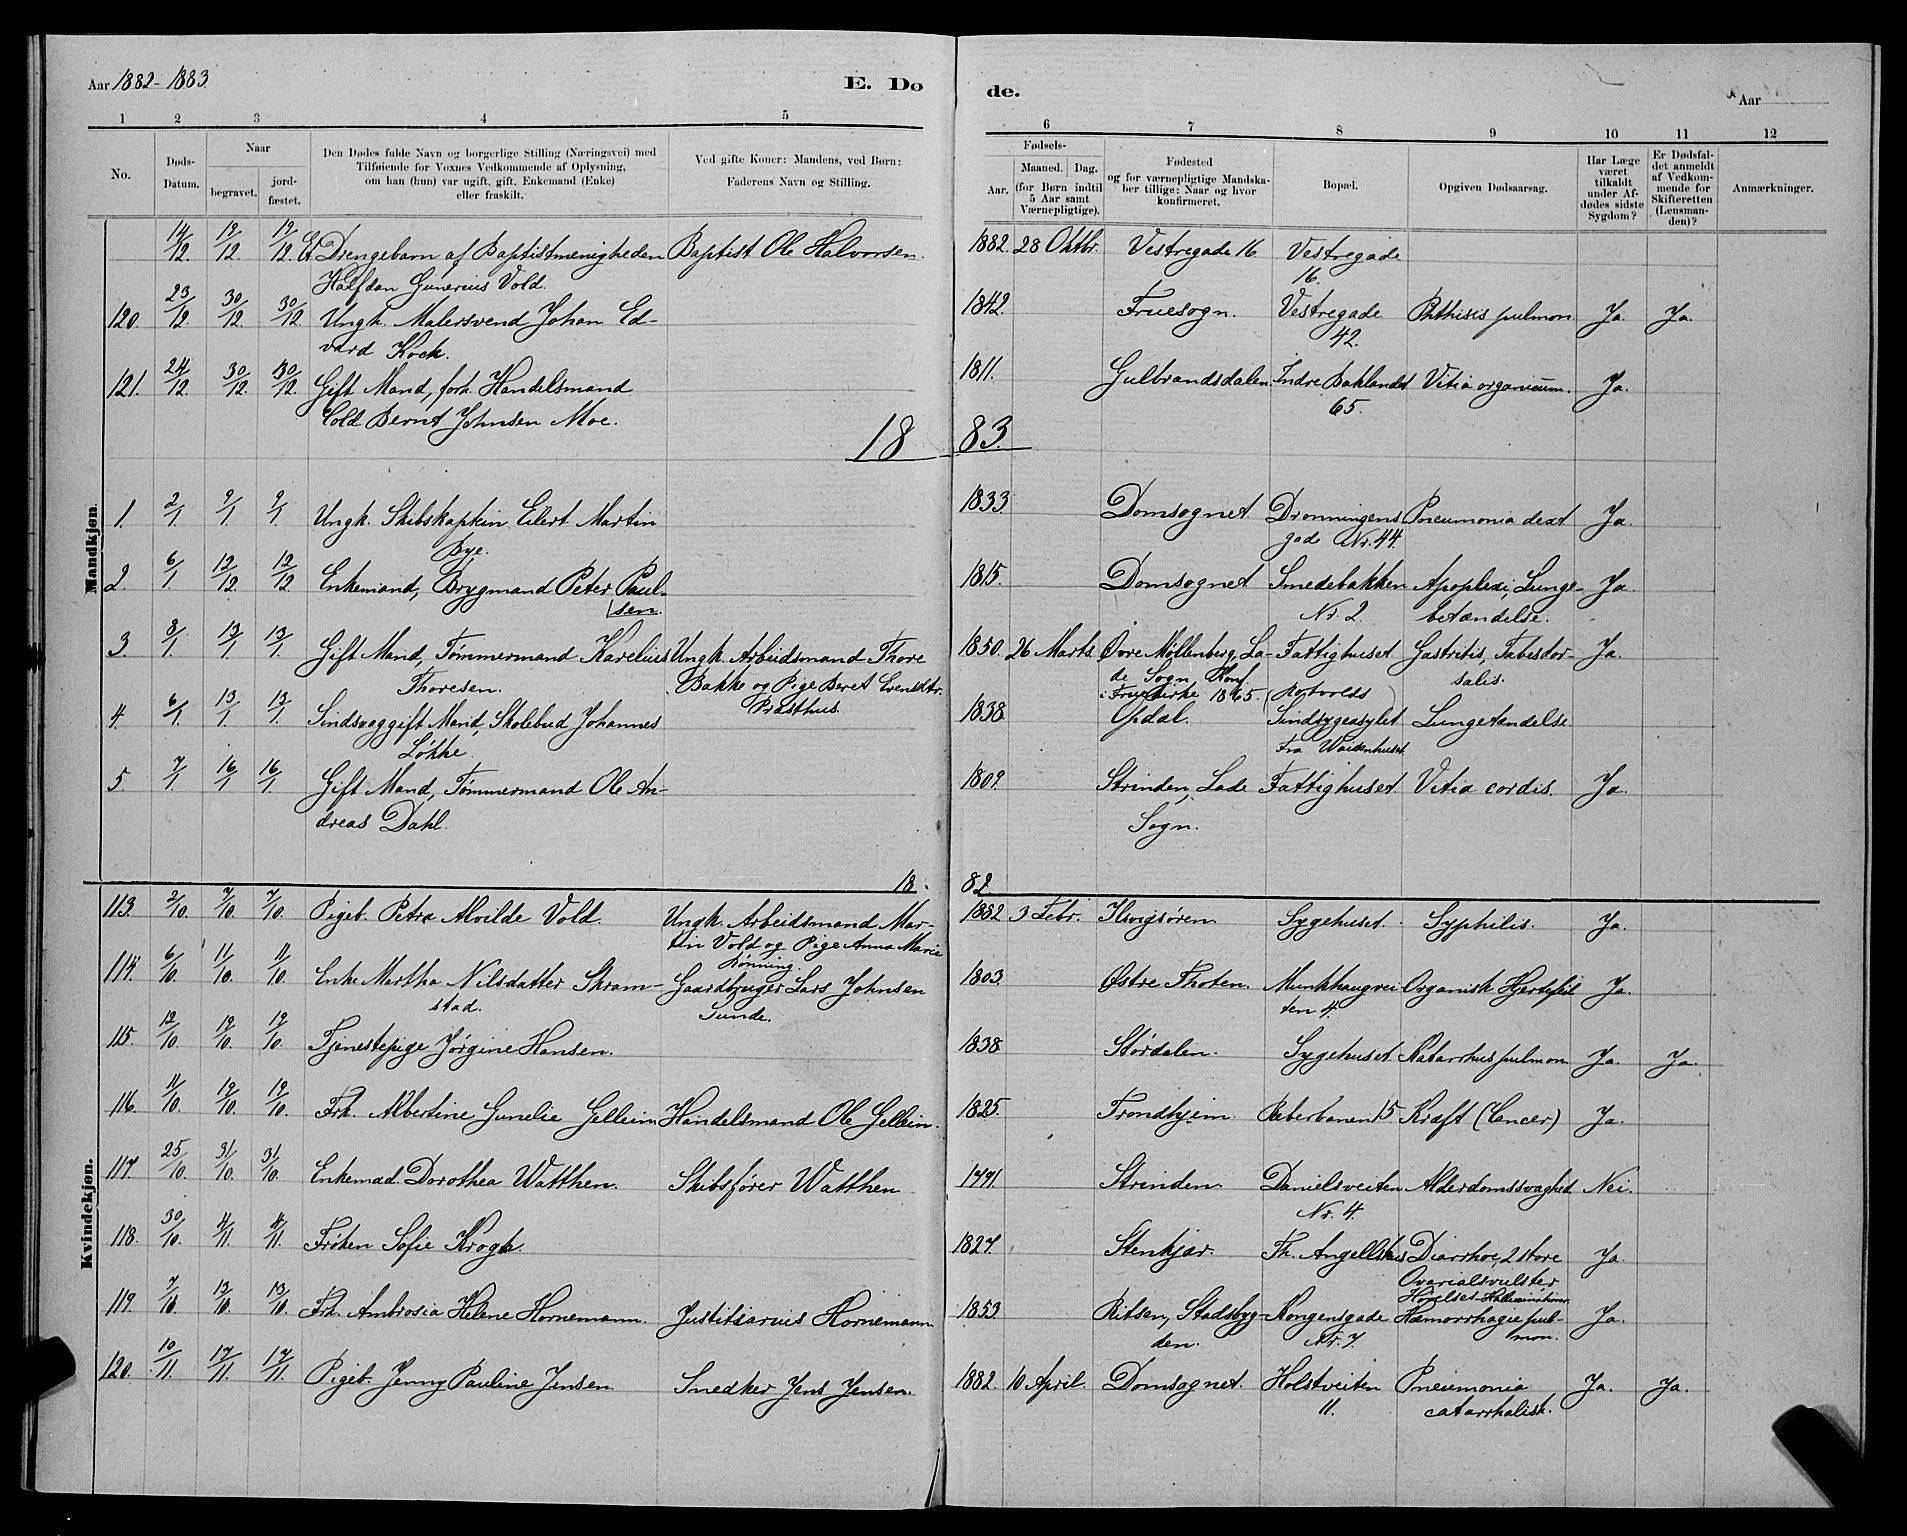 Aar 1882-1883. E. Do de. Aar
1 2 3 4 5 6 7 8 9 10 11 12
No. Døds-Datum. Naar begravet. jord-fæstet. Den Dødes fulde Navn og borgerlige Stilling (Næringsvei) med Tilføiende for Voxnes Vedkommende af Oplysning, om han (hun) var ugift, gift, Enkemand (Enke) eller fraskilt. Ved gifte Koner: Mandens, ved Børn: Faderens Navn og Stilling. Fødsels- Aar. Maaned. Dag. (for Børn indtil 5 Aar samt Værnepligtige). Fødested og for værnepligtige Mandskaber tillige: Naar og hvor konfirmeret. Bopæl. Opgiven Dødsaarsag. Har Læge været tilkaldt under Afdødes sidste Sygdom? Er Dødsfaldet anmeldt af Vedkommende for Skifteretten (Lensmanden)? Anmærkninger.
Mandkjøn.
14/12. 19/12. 19/12. Et Drengebarn af Baptistmenigheden Baptist Ole Halvorsen. 1882. 28 Oktbr. Vestregade 16. Vestregade
Halfdan Gunerius Vold. 16.
120. 23/12. 30/12. 30/12. Ungk. Malersvend Johan Ed- 1842. Fruesogn. Vestregade Phthisis pulmon. Ja. Ja.
vard Kock. 42.
121. 24/12. 30/12. 30/12. Gift Mand, forh. Handelsmand 1811. Gulbrandsdalen. Indre Baklandet Vitia organicum. Ja.
Cold Bernt Johnsen Moe. 65.
18 83.
1. 2/1 9/1 9/1 Ungk. Skibskaptein Eilert Martin 1833. Domsognet. Dronningens Pneumonia dext. Ja.
Bye. gade Nr. 44.
2. 6/1 12/12 12/12 Enkemand, Brygmand Peter Paul- 1815. Domsognet Smedebakken Apoplexi, Lunge- Ja.
sen. Nr. 2 betændelse.
3. 8/1. 13/1 13/1 Gift Mand, Tømmermand Karelius Ungk. Arbeidsmand Thore 1850. 26 Marts. Øvre Møllenberg, La- Fattighuset Gastritis, Tabesdor- Ja.
Thoresen. Bakke og Pige Beret Evensdtr. de Sogn Konf. salis.
Præsthus. i Fruekirke 1865. (Rotvolds)
4. 6/1 13/1 13/1 Sindsvag gift Mand, Skolebud Johannes 1838. Opdal. Sindsygeasylet Lungetændelse.
Løkke. Fra Waisenhuset.
5. 7/1 16/1 16/1 Gift Mand, Tømmermand Ole An- 1809. Strinden, Lade Fattighuset Vitia cordis. Ja.
dreas Dahl. Sogn.
18. 82.
Kvindekjøn.
113. 2/10. 7/10. 7/10. Pigeb. Petra Alvilde Vold. Ungk. Arbeidsmand Mar- 1882. 3 Febr. Sygehuset. Syphilis. Ja.
tin Vold og Pige Anna Marie
Rønning.
114. 6/10. 11/10. 11/10. Enke Martha Nilsdatter Skram- Gaardbruger Lars Johnsen 1803. Østre Thoten. Munkhaugvei Organisk Hjertefeil Ja.
stad. ten 4.
115. 12/10. 19/10. 19/10. Tjenestepige Jørgine Hansen. 1838. Størdalen. Sygehuset. Katarrhus pulmon. Ja. Ja.
116. 11/10. 19/10. 19/10. Frk. Albertine Gunelie Gellein. Handelsmand Ole Gellein. 1825. Trondhjem. Reberbanen 15. Kræft (Cancer) Ja.
117. 25/10. 31/10. 31/10. Enkemad. Dorothea Watthen. Skibsfører Watthen 1791. Strinden. Danielsveiten Alderdomssvaghed Nei.
Nr. 4.
118. 30/10. 4/11. 4/11. Frøken Sofie Krogh. 1827. Stenkjær. Th. Angells hus Diarrhoe, 2 store Ja.
Ovarialsvulster
Hørelses-Hallucinationer
119. 7/10 13/10. 13/10. Frk. Ambrosia Helene Hornemann. Justitiarius Hornemann. 1853. Ritsen, Stadsbyg- Kongensgade Hæmorrhagie pul- Ja.
den. Nr. 7 mon.
120. 10/11. 17/11. 17/11. Pigeb. Jenny Pauline Jensen. Snedker Jens Jensen. 1882. 10 April. Domsognet. Holstveiten Pneumonia Ja. Ja.
11. catarrhalisk.